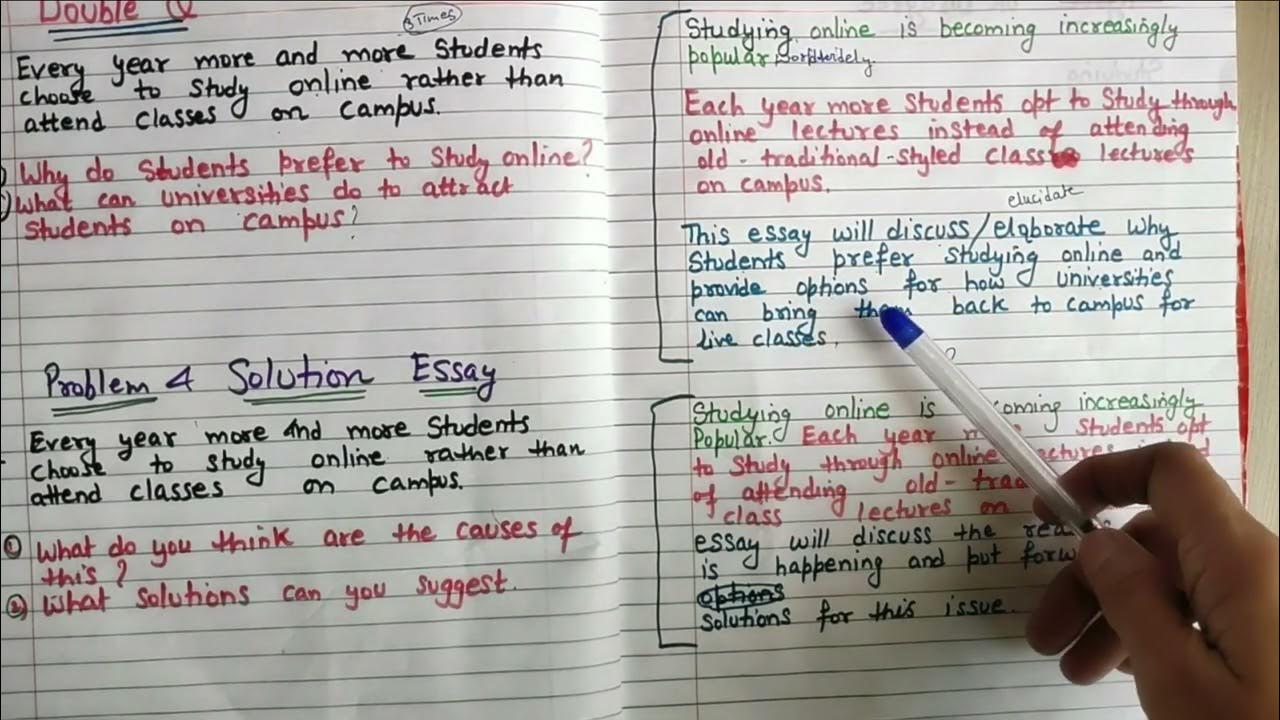 Double Q
3 Times
Every year more and more Students
choose to Study online rather than
attend classes on campus.
Why do Students prefer to Study online?
What can universities do to attract
Students on campus?
Problem & Solution Essay
Every year more and more Students
choose to study online rather than
attend classes on campus.
① What do you think are the causes of
this?
② What solutions can you suggest.
Studying online is becoming increasingly
popular
Each year more Students opt to Study through
online lectures instead of attending
old-traditional-styled class lectures
on campus.
elucidate
This essay will discuss/elaborate why
Students prefer studying online and
provide options for how universities
can bring them back to campus for
live classes.
Studying online is coming increasingly
Popular. Each year Students opt
to Study through online
of attending old-
class lectures on
essay will discuss the
is happening and put
options
Solutions for this issue.